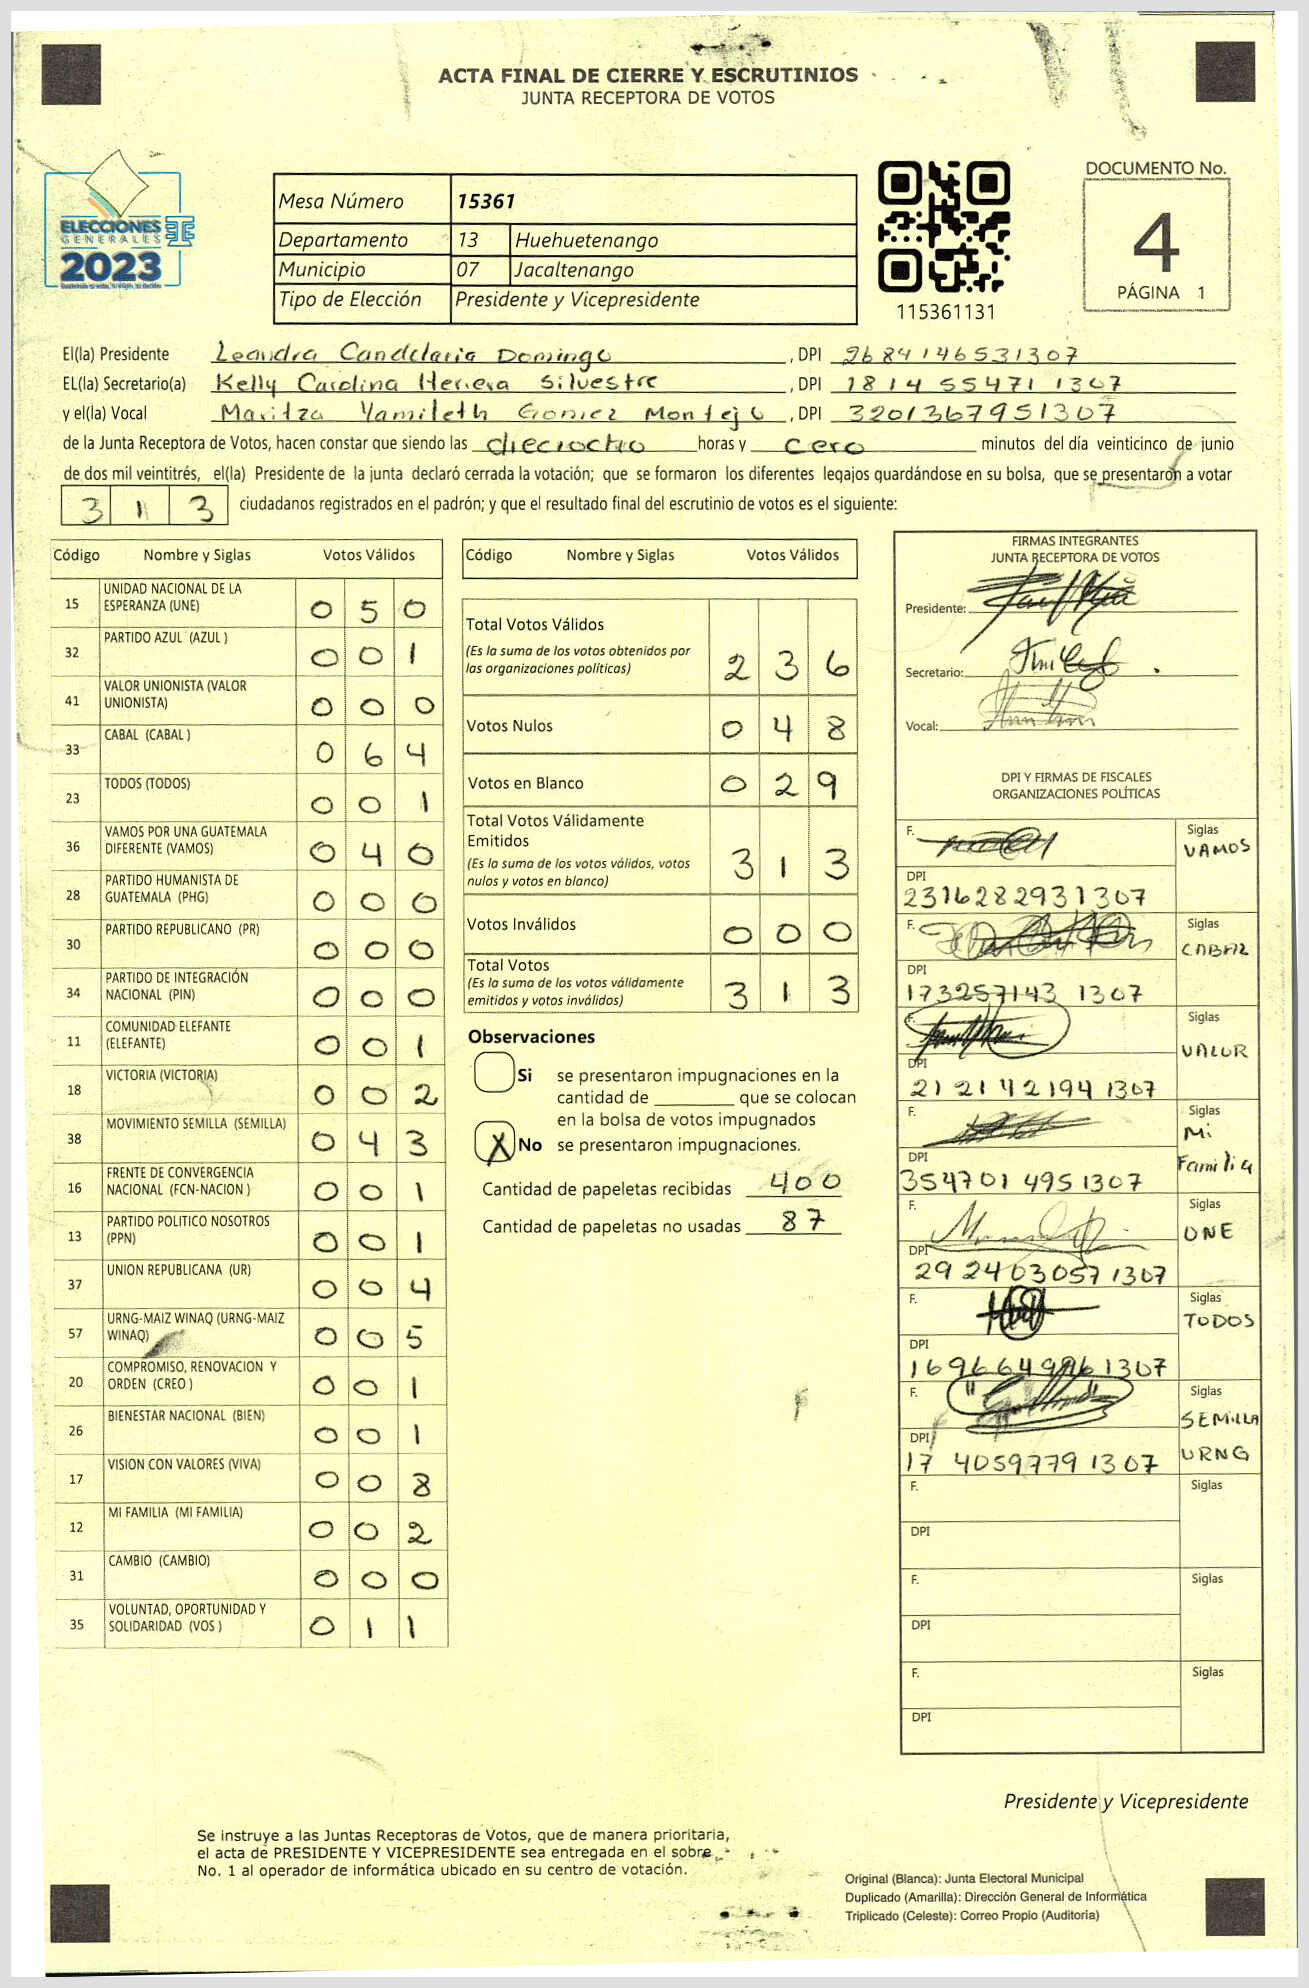 ACTA FINAL DE CIERRE Y ESCRUTINIOS
JUNTA RECEPTORA DE VOTOS
ELECCIONES
GENERALES
2023
Mesa Número 15361
Departamento 13 Huehuetenango
Municipio 07 Jacaltenango
Tipo de Elección Presidente y Vicepresidente
115361131
DOCUMENTO No.
4
PÁGINA 1
El(la) Presidente Leandra Candelaria Domingo, DPI 2684146531307
EL(la) Secretario(a) Kelly Carolina Herrera Silvestre, DPI 1814 55471 1307
y el(la) Vocal Maritza Yamileth Gomez Montejo, DPI 3201367951307
de la Junta Receptora de Votos, hacen constar que siendo las dieciocho horas y cero minutos del día veinticinco de junio
de dos mil veintitrés, el(la) Presidente de la junta declaró cerrada la votación; que se formaron los diferentes legajos guardándose en su bolsa, que se presentaron a votar
313 ciudadanos registrados en el padrón; y que el resultado final del escrutinio de votos es el siguiente:
Código Nombre y Siglas Votos Válidos
15 UNIDAD NACIONAL DE LA ESPERANZA (UNE) 0 5 0
32 PARTIDO AZUL (AZUL ) 0 0 1
41 VALOR UNIONISTA (VALOR UNIONISTA) 0 0 0
33 CABAL (CABAL ) 0 6 4
23 TODOS (TODOS) 0 0 1
36 VAMOS POR UNA GUATEMALA DIFERENTE (VAMOS) 0 4 0
28 PARTIDO HUMANISTA DE GUATEMALA (PHG) 0 0 0
30 PARTIDO REPUBLICANO (PR) 0 0 0
34 PARTIDO DE INTEGRACIÓN NACIONAL (PIN) 0 0 0
11 COMUNIDAD ELEFANTE (ELEFANTE) 0 0 1
18 VICTORIA (VICTORIA) 0 0 2
38 MOVIMIENTO SEMILLA (SEMILLA) 0 4 3
16 FRENTE DE CONVERGENCIA NACIONAL (FCN-NACION ) 0 0 1
13 PARTIDO POLITICO NOSOTROS (PPN) 0 0 1
37 UNION REPUBLICANA (UR) 0 0 4
57 URNG-MAIZ WINAQ (URNG-MAIZ WINAQ) 0 0 5
20 COMPROMISO, RENOVACION Y ORDEN (CREO ) 0 0 1
26 BIENESTAR NACIONAL (BIEN) 0 0 1
17 VISION CON VALORES (VIVA) 0 0 8
12 MI FAMILIA (MI FAMILIA) 0 0 2
31 CAMBIO (CAMBIO) 0 0 0
35 VOLUNTAD, OPORTUNIDAD Y SOLIDARIDAD (VOS ) 0 1 1
Código Nombre y Siglas Votos Válidos
Total Votos Válidos 2 3 6
(Es la suma de los votos obtenidos por
las organizaciones políticas)
Votos Nulos 0 4 8
Votos en Blanco 0 2 9
Total Votos Válidamente
Emitidos 3 1 3
(Es la suma de los votos válidos, votos
nulos y votos en blanco)
Votos Inválidos 0 0 0
Total Votos 3 1 3
(Es la suma de los votos válidamente
emitidos y votos inválidos)
Observaciones
Si se presentaron impugnaciones en la
cantidad de ________ que se colocan
en la bolsa de votos impugnados
X No se presentaron impugnaciones.
Cantidad de papeletas recibidas 400
Cantidad de papeletas no usadas 87
FIRMAS INTEGRANTES
JUNTA RECEPTORA DE VOTOS
Presidente:
Secretario:
Vocal:
DPI Y FIRMAS DE FISCALES
ORGANIZACIONES POLÍTICAS
F. Siglas VAMOS
DPI 2316282931307
F. Siglas CABAL
DPI 173257143 1307
F. Siglas VALOR
DPI 21 2142194 1307
F. Siglas Mi Familia
DPI 354701 4951307
F. Siglas UNE
DPI 29 24030571307
F. Siglas TODOS
DPI
F. Siglas SEMILLA URNG
DPI 17 4059779 1307
F. Siglas
DPI
F. Siglas
DPI
F. Siglas
DPI
Presidente y Vicepresidente
Se instruye a las Juntas Receptoras de Votos, que de manera prioritaria,
el acta de PRESIDENTE Y VICEPRESIDENTE sea entregada en el sobre
No. 1 al operador de informática ubicado en su centro de votación.
Original (Blanca): Junta Electoral Municipal
Duplicado (Amarilla): Dirección General de Informática
Triplicado (Celeste): Correo Propio (Auditoría)